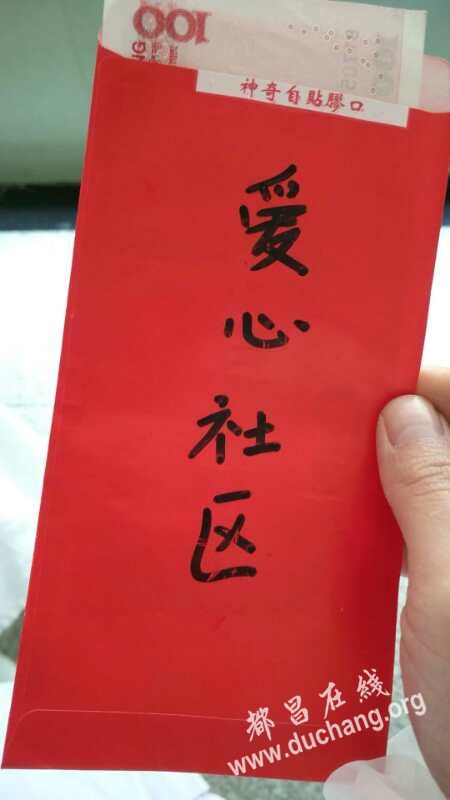 100
神奇自貼膠口
爱心社区
都昌在线
www.duchang.org